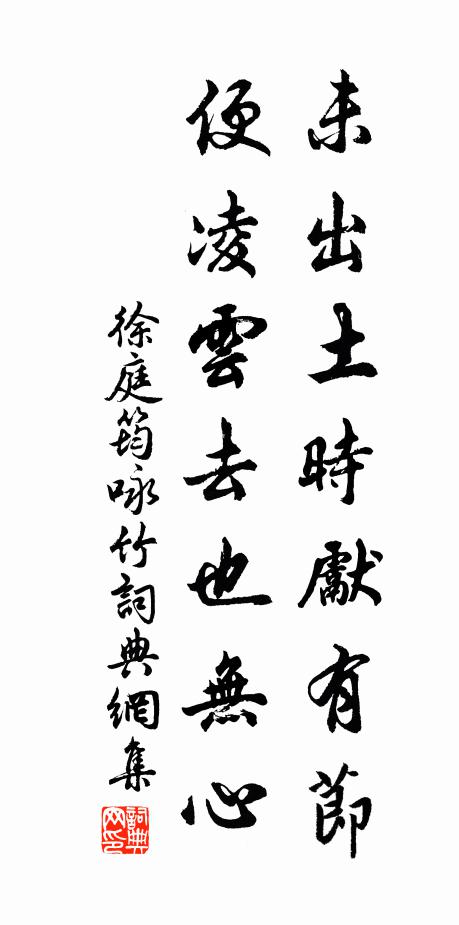 未出土時獻有節
便凌雲去也無心
徐庭筠咏竹詞典網集
詞典网印